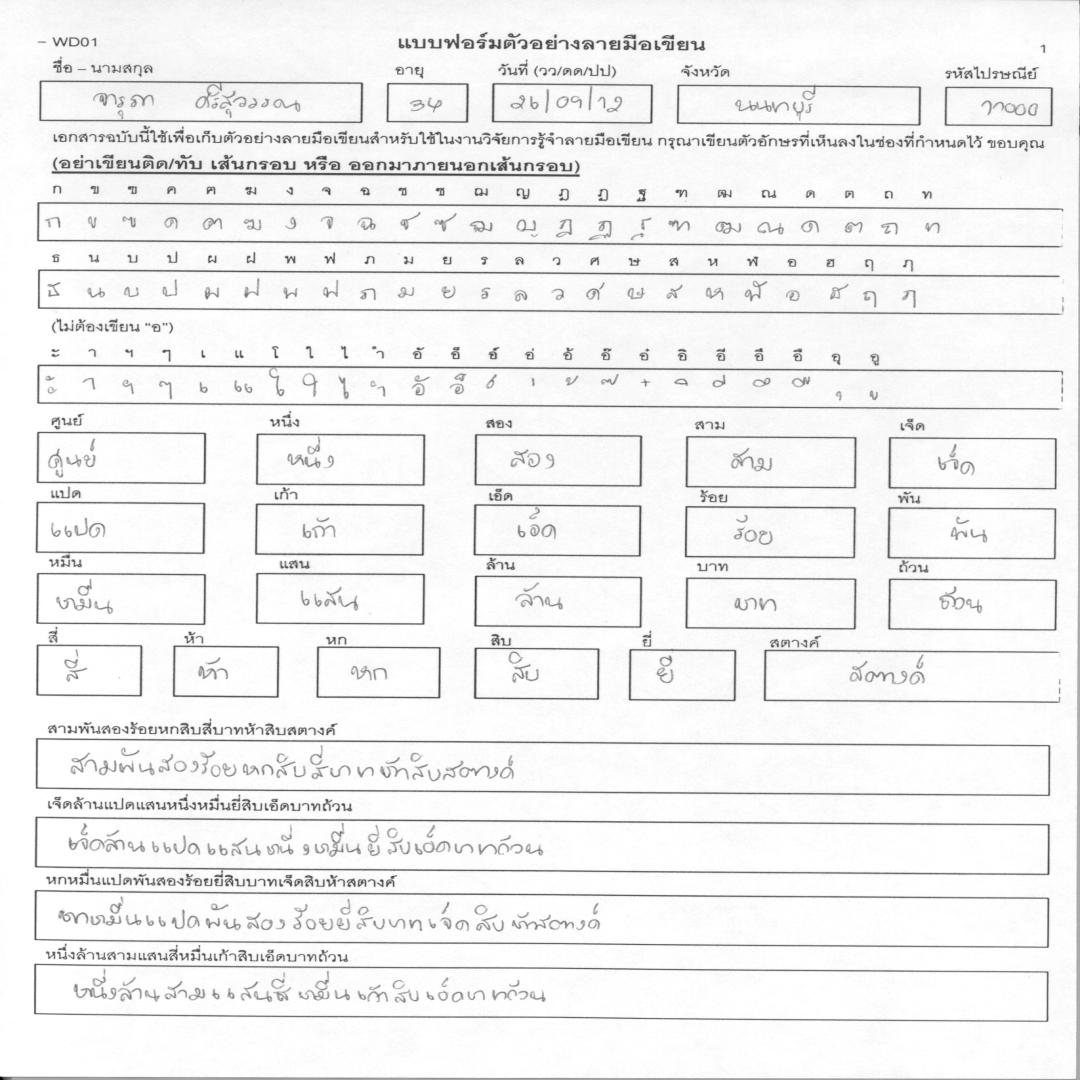 – WD01 แบบฟอร์มตัวอย่างลายมือเขียน 1
ชื่อ – นามสกุล อายุ วันที่ (วว/ดด/ปป) จังหวัด รหัสไปรษณีย์
จารุภา ศรีสุวรรณ 34 26/09/12 นนทบุรี 11000
เอกสารฉบับนี้ใช้เพื่อเก็บตัวอย่างลายมือเขียนสำหรับใช้ในงานวิจัยการรู้จำลายมือเขียน กรุณาเขียนตัวอักษรที่เห็นลงในช่องที่กำหนดไว้ ขอบคุณ
(อย่าเขียนติด/ทับ เส้นกรอบ หรือ ออกมาภายนอกเส้นกรอบ)
ก ข ฃ ค ฅ ฆ ง จ ฉ ช ซ ฌ ญ ฎ ฏ ฐ ฑ ฒ ณ ด ต ถ ท
ก ข ฃ ค ฅ ฆ ง จ ฉ ช ซ ฌ ญ ฎ ฏ ฐ ฑ ฒ ณ ด ต ถ ท
ธ น บ ป ผ ฝ พ ฟ ภ ม ย ร ล ว ศ ษ ส ห ฬ อ ฮ ฤ ฦ
ธ น บ ป ผ ฝ พ ฟ ภ ม ย ร ล ว ศ ษ ส ห ฬ อ ฮ ฤ ฦ
(ไม่ต้องเขียน “อ”)
ะ า ฯ ๆ เ แ โ ใ ไ ำ อั อ็ อ์ อ่ อ้ อ๊ อ๋ อิ อี อึ อื อุ อู
ะ า ฯ ๆ เ แ โ ใ ไ ำ อั อ็ ์ ่ ้ ๊ ๋ ิ ี ึ ื ุ ู
ศูนย์ หนึ่ง สอง สาม เจ็ด
ศูนย์ หนึ่ง สอง สาม เจ็ด
แปด เก้า เอ็ด ร้อย พัน
แปด เก้า เอ็ด ร้อย พัน
หมื่น แสน ล้าน บาท ถ้วน
หมื่น แสน ล้าน บาท ถ้วน
สี่ ห้า หก สิบ ยี่ สตางค์
สี่ ห้า หก สิบ ยี่ สตางค์
สามพันสองร้อยหกสิบสี่บาทห้าสิบสตางค์
สามพันสองร้อยหกสิบสี่บาทห้าสิบสตางค์
เจ็ดล้านแปดแสนหนึ่งหมื่นยี่สิบเอ็ดบาทถ้วน
เจ็ดล้านแปดแสนหนึ่งหมื่นยี่สิบเอ็ดบาทถ้วน
หกหมื่นแปดพันสองร้อยยี่สิบบาทเจ็ดสิบห้าสตางค์
หกหมื่นแปดพันสองร้อยยี่สิบบาทเจ็ดสิบห้าสตางค์
หนึ่งล้านสามแสนสี่หมื่นเก้าสิบเอ็ดบาทถ้วน
หนึ่งล้านสามแสนสี่หมื่นเก้าสิบเอ็ดบาทถ้วน